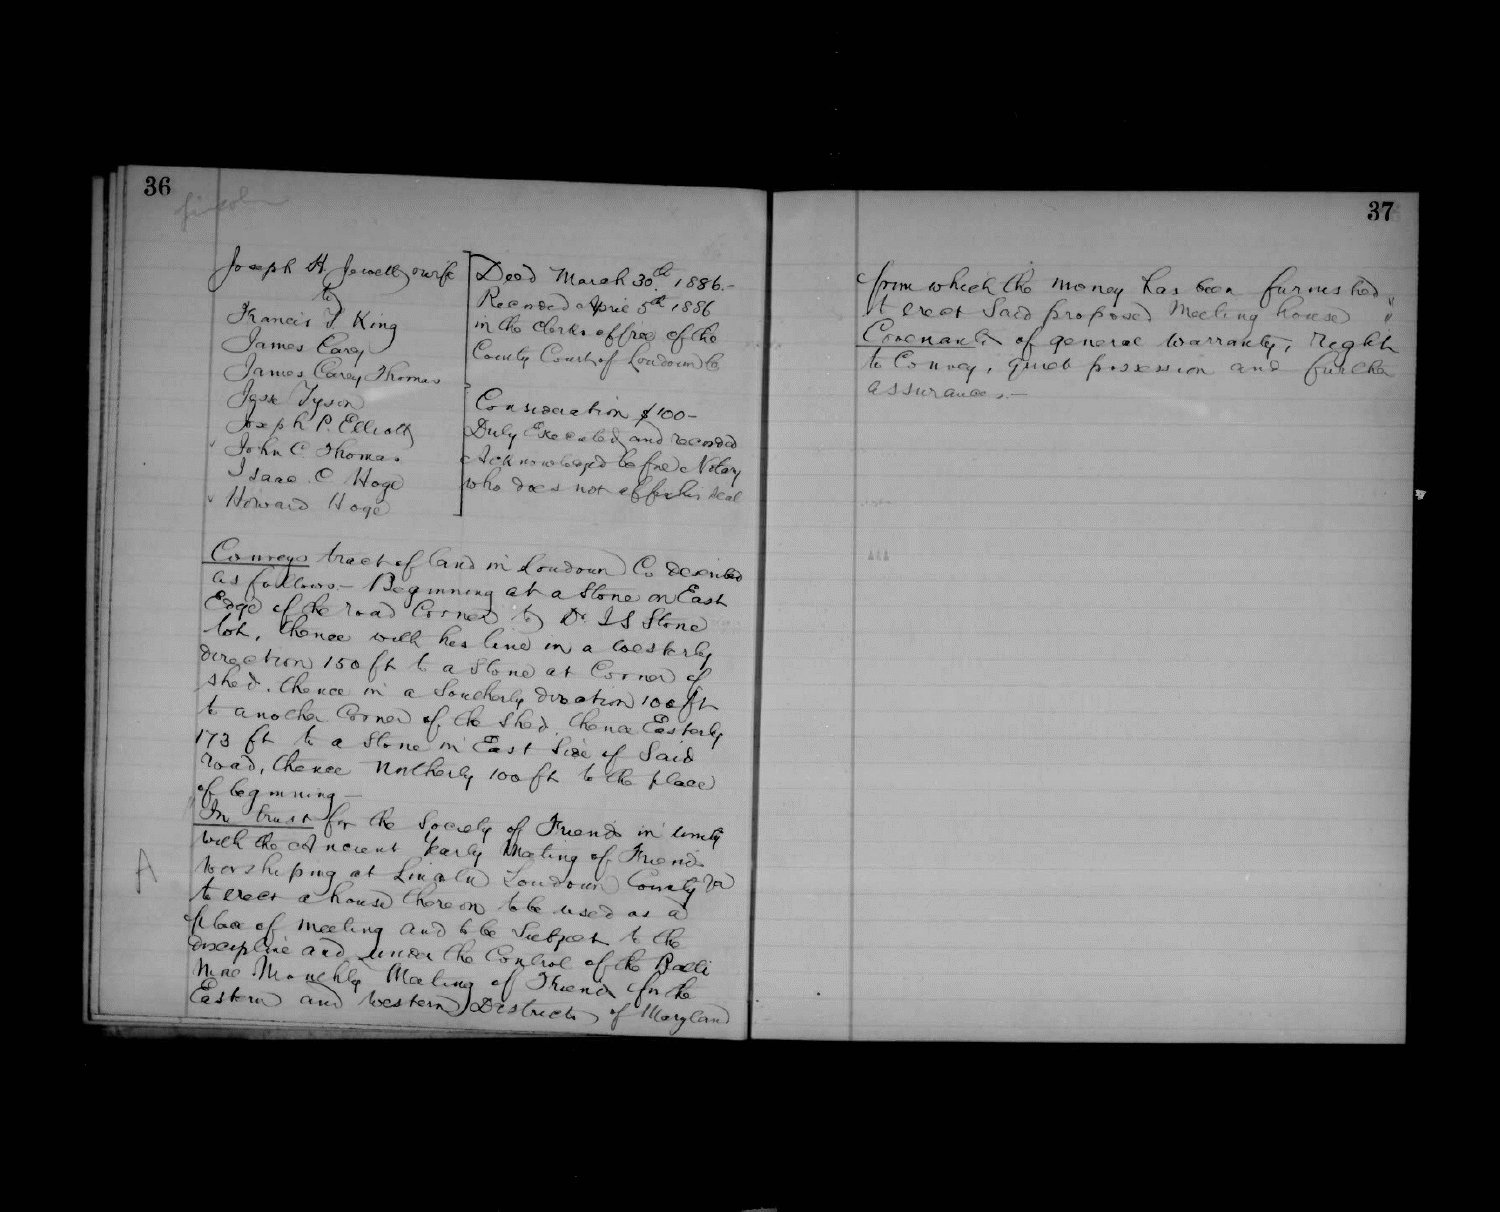 36
Lincoln
Joseph H Jewell & wife
to
Francis T King
James Carey
James Carey Thomas
Jesse Tyson
Joseph P. Elliott
John C. Thomas
Isaac C Hoge
Howard Hoge
Deed March 30th 1886.-
Recorded April 5th 1886
in the Clerks office of the
County Court of Loudoun Co
Consideration $100-
Duly Executed and recorded
Acknowledged before Notary
who does not affix his seal
Conveys tract of land in Loudoun Co described
as follows- Beginning at a Stone on East
Edge of the road Corner to Dr I S Stone
lot, thence with his line in a westerly
direction 150 ft to a Stone at Corner of
shed. thence in a Southerly direction 100 ft
to another Corner of the shed. thence Easterly
173 ft to a Stone in East Side of Said
road, thence Northerly 100 ft to the place
of beginning-
In trust for the Society of Friends in unity
with the Ancient Yearly Meeting of Friends
worshiping at Lincoln Loudoun County Va
A
to erect a house thereon to be used as a
place of meeting and to be Subject to the
discipline and under the Control of the Balti
more Monthly Meeting of Friends for the
Eastern and Western Districts of Maryland
37
from which the money has been furnished
to erect Said proposed Meeting house "
Covenants of general warranty, right
to Convey, quiet possession and further
assurances.-